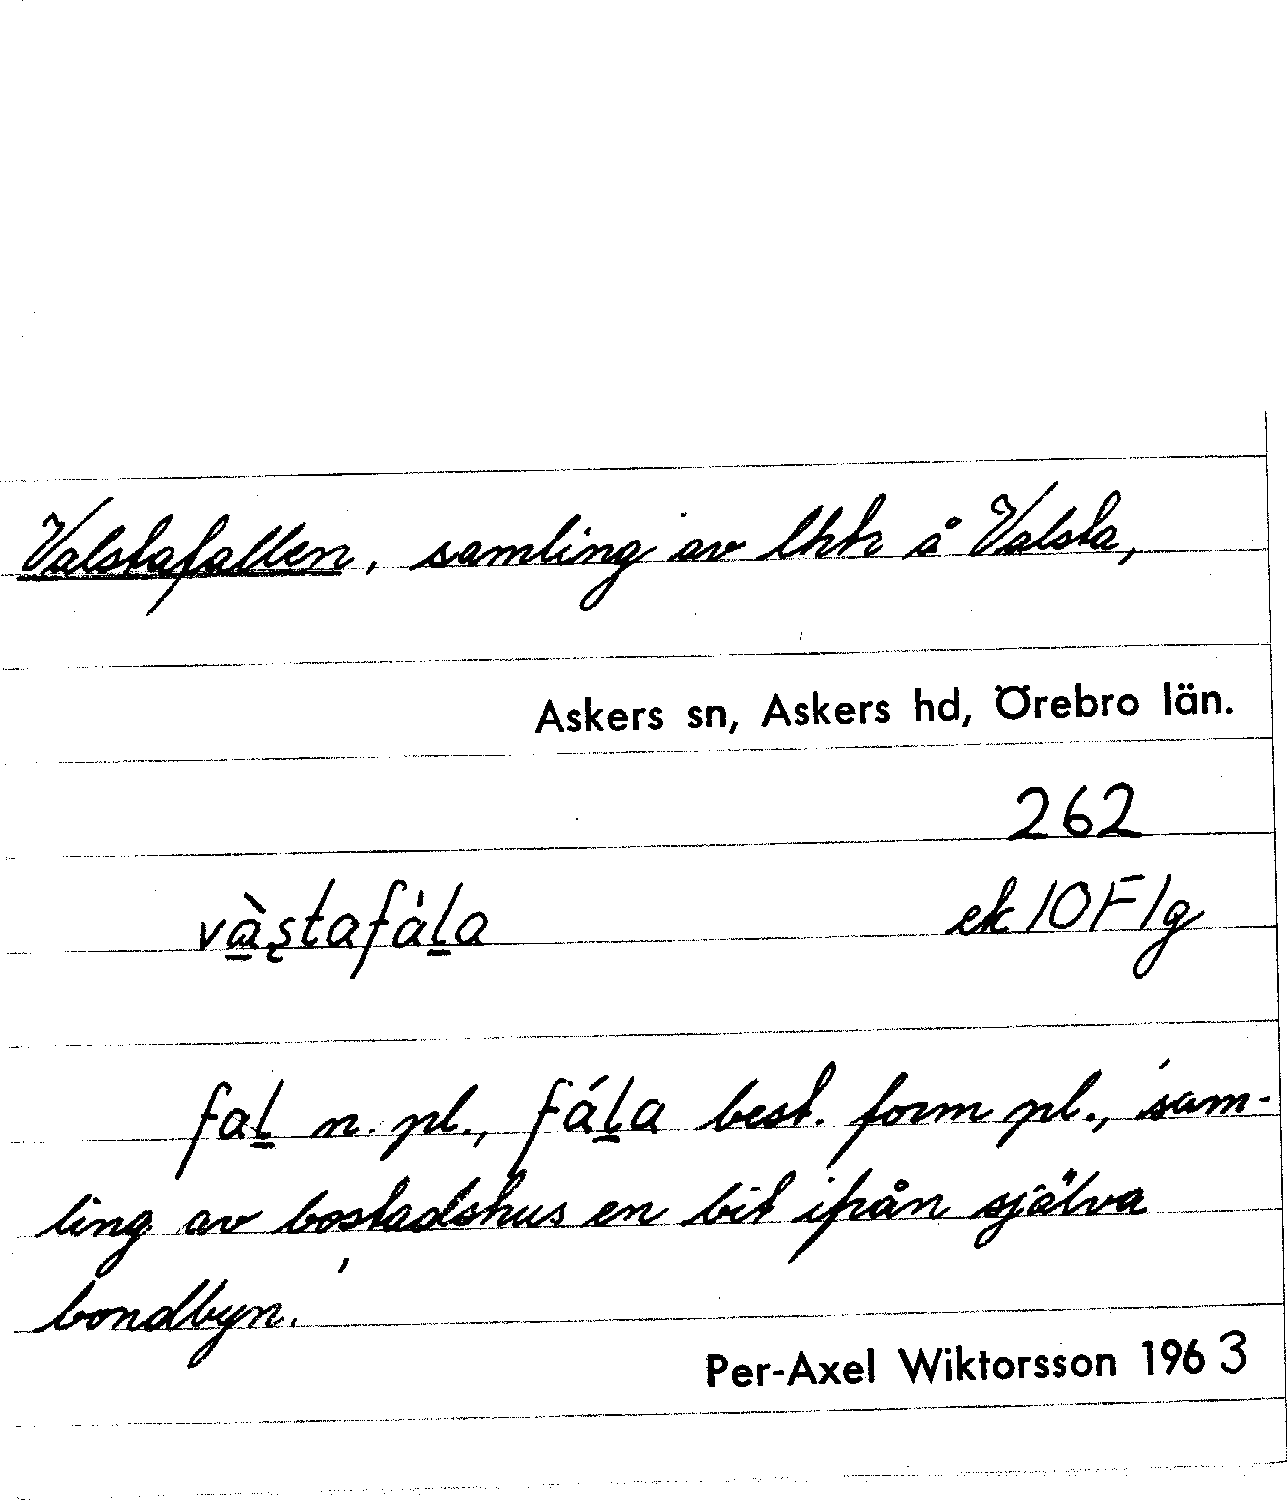 Valstafallen, samling av lhtr å Valsta,
Askers sn, Askers hd, Örebro län.
262
và̱ʂtafáḻa
ek 10F1g
faḻ n. pl., fáḻa best. form pl., 'sam-
ling av bostadshus en bit ifrån själva
bondbyn.'
Per-Axel Wiktorsson 1963